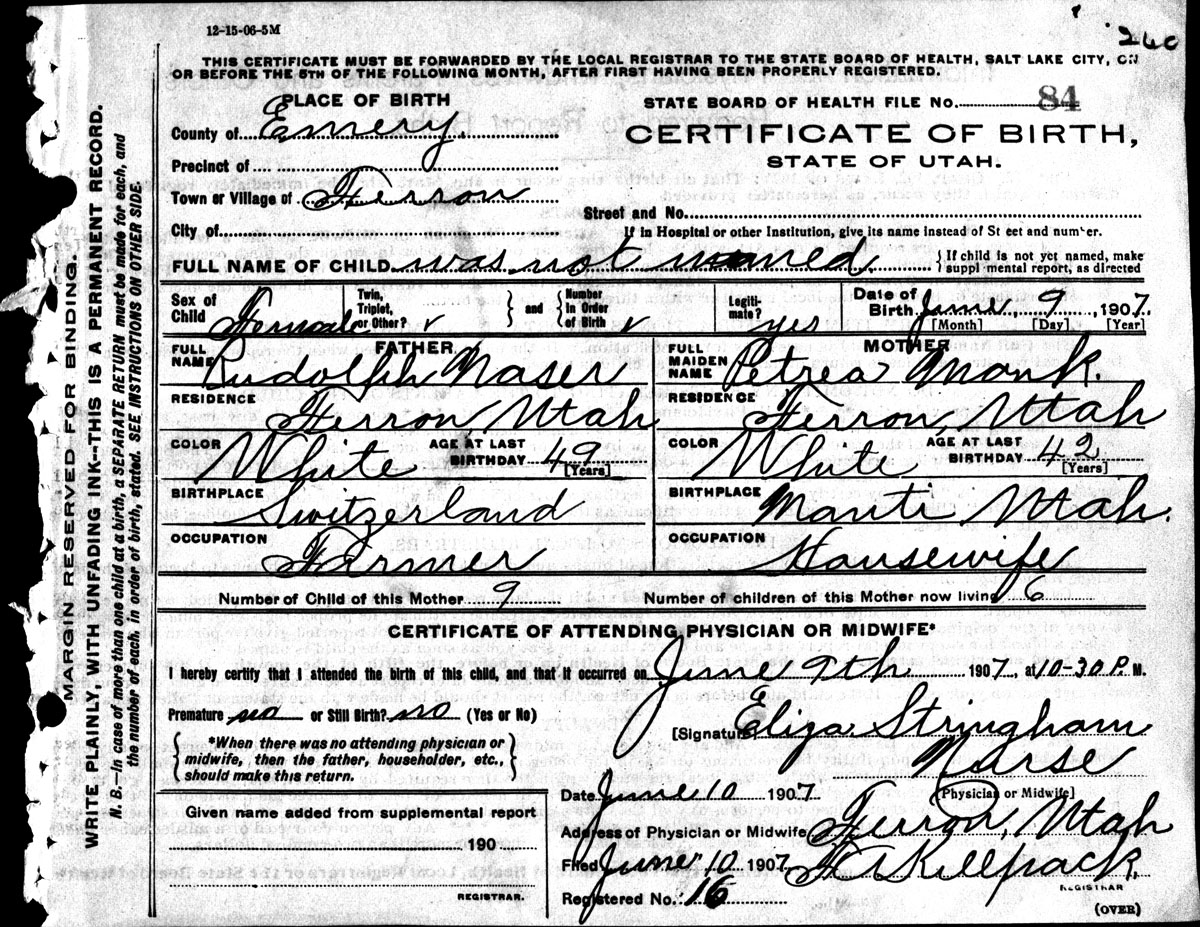 12-15-06-5M
260
THIS CERTIFICATE MUST BE FORWARDED BY THE LOCAL REGISTRAR TO THE STATE BOARD OF HEALTH, SALT LAKE CITY, ON
OR BEFORE THE 5TH OF THE FOLLOWING MONTH, AFTER FIRST HAVING BEEN PROPERLY REGISTERED.
PLACE OF BIRTH
County of Emery.
Precinct of
Town or Village of Ferron
City of
STATE BOARD OF HEALTH FILE No. 84
CERTIFICATE OF BIRTH,
STATE OF UTAH.
Street and No.
If in Hospital or other Institution, give its name instead of St eet and number.
FULL NAME OF CHILD was not named. { If child is not yet named, make
suppl mental report, as directed
Sex of Child Female
Twin, Triplet, or Other? v } and { Number In Order of Birth v
Legitimate? yes
Date of Birth June 9 1907
[Month] [Day] [Year]
FATHER
FULL NAME Rudolph Naser
RESIDENCE Ferron, Utah
COLOR White AGE AT LAST BIRTHDAY 49 [Years]
BIRTHPLACE Switzerland
OCCUPATION Farmer
MOTHER
FULL MAIDEN NAME Petrea Monk.
RESIDENCE Ferron, Utah
COLOR White AGE AT LAST BIRTHDAY 42 [Years]
BIRTHPLACE Manti Utah.
OCCUPATION Housewife
Number of Child of this Mother 9 Number of children of this Mother now living 6
CERTIFICATE OF ATTENDING PHYSICIAN OR MIDWIFE*
I hereby certify that I attended the birth of this child, and that it occurred on June 9th 1907, at 10-30 P. M.
Premature no or Still Birth? no (Yes or No)
{ *When there was no attending physician or
midwife, then the father, householder, etc.,
should make this return. }
[Signature Eliza Stringham
Nurse
[Physician or Midwife]
Given name added from supplemental report
190
REGISTRAR.
Date June 10 1907
Address of Physician or Midwife Ferron, Utah
Filed June 10 1907 Killpack
REGISTRAR
Registered No. 16
(OVER)
MARGIN RESERVED FOR BINDING.
WRITE PLAINLY, WITH UNFADING INK--THIS IS A PERMANENT RECORD.
N. B.—In case of more than one child at a birth, a SEPARATE RETURN must be made for each, and
the number of each, in order of birth, stated. SEE INSTRUCTIONS ON OTHER SIDE.